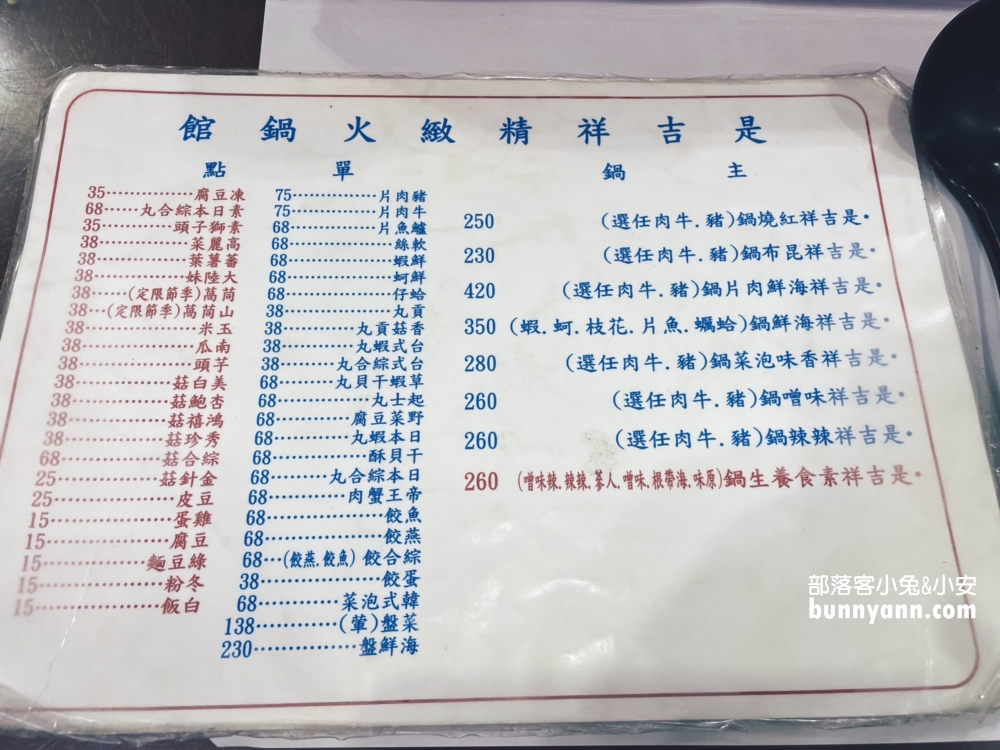 是吉祥精緻火鍋館
主鍋
•是吉祥紅燒鍋(豬.牛肉任選) 250
•是吉祥昆布鍋(豬.牛肉任選) 230
•是吉祥海鮮肉片鍋(豬.牛肉任選) 420
•是吉祥海鮮鍋(蛤蠣.魚片.花枝.蚵.蝦) 350
•是吉祥香味泡菜鍋(豬.牛肉任選) 280
•是吉祥味噌鍋(豬.牛肉任選) 260
•是吉祥辣辣鍋(豬.牛肉任選) 260
•是吉祥素食養生鍋(原味.海帶根.味噌.人蔘.辣辣.辣味噌) 260
單點
豬肉片 75
牛肉片 75
鱸魚片 68
軟絲 68
鮮蝦 68
鮮蚵 68
蛤仔 68
貢丸 38
香菇貢丸 38
台式蝦丸 38
台式綜合丸 38
草蝦干貝丸 68
起士丸 68
野菜豆腐 68
日本蝦丸 68
干貝酥 68
日本綜合丸 68
帝王蟹肉 68
魚餃 68
燕餃 68
綜合餃(魚餃.燕餃) 68
蛋餃 38
韓式泡菜 68
菜盤(葷) 138
海鮮盤 230
凍豆腐 35
素日本綜合丸 68
素獅子頭 35
高麗菜 38
蕃薯葉 38
大陸妹 38
茼萵(季節限定) 38
山茼萵(季節限定) 38
玉米 38
南瓜 38
芋頭 38
美白菇 38
杏鮑菇 38
鴻禧菇 38
秀珍菇 38
綜合菇 68
金針菇 25
豆皮 25
雞蛋 15
豆腐 15
綠豆麵 15
冬粉 15
白飯 15
部落客小兔&小安
bunnyann.com